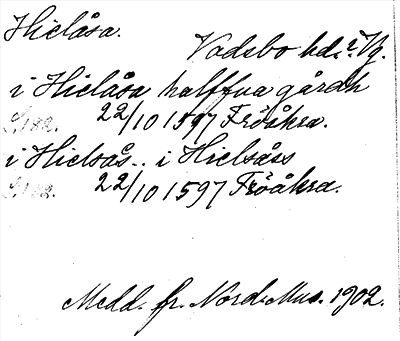 Hielåsa.
Vadsbo hd. i Vg.
i Hielåsa halffua gårdh
S. 182. 22/10 1597 Fröåkra.
i Hielsås.. i Hielsåss
S. 182. 22/10 1597 Fröåkra.
Medd. fr. Nord. Mus. 1902.